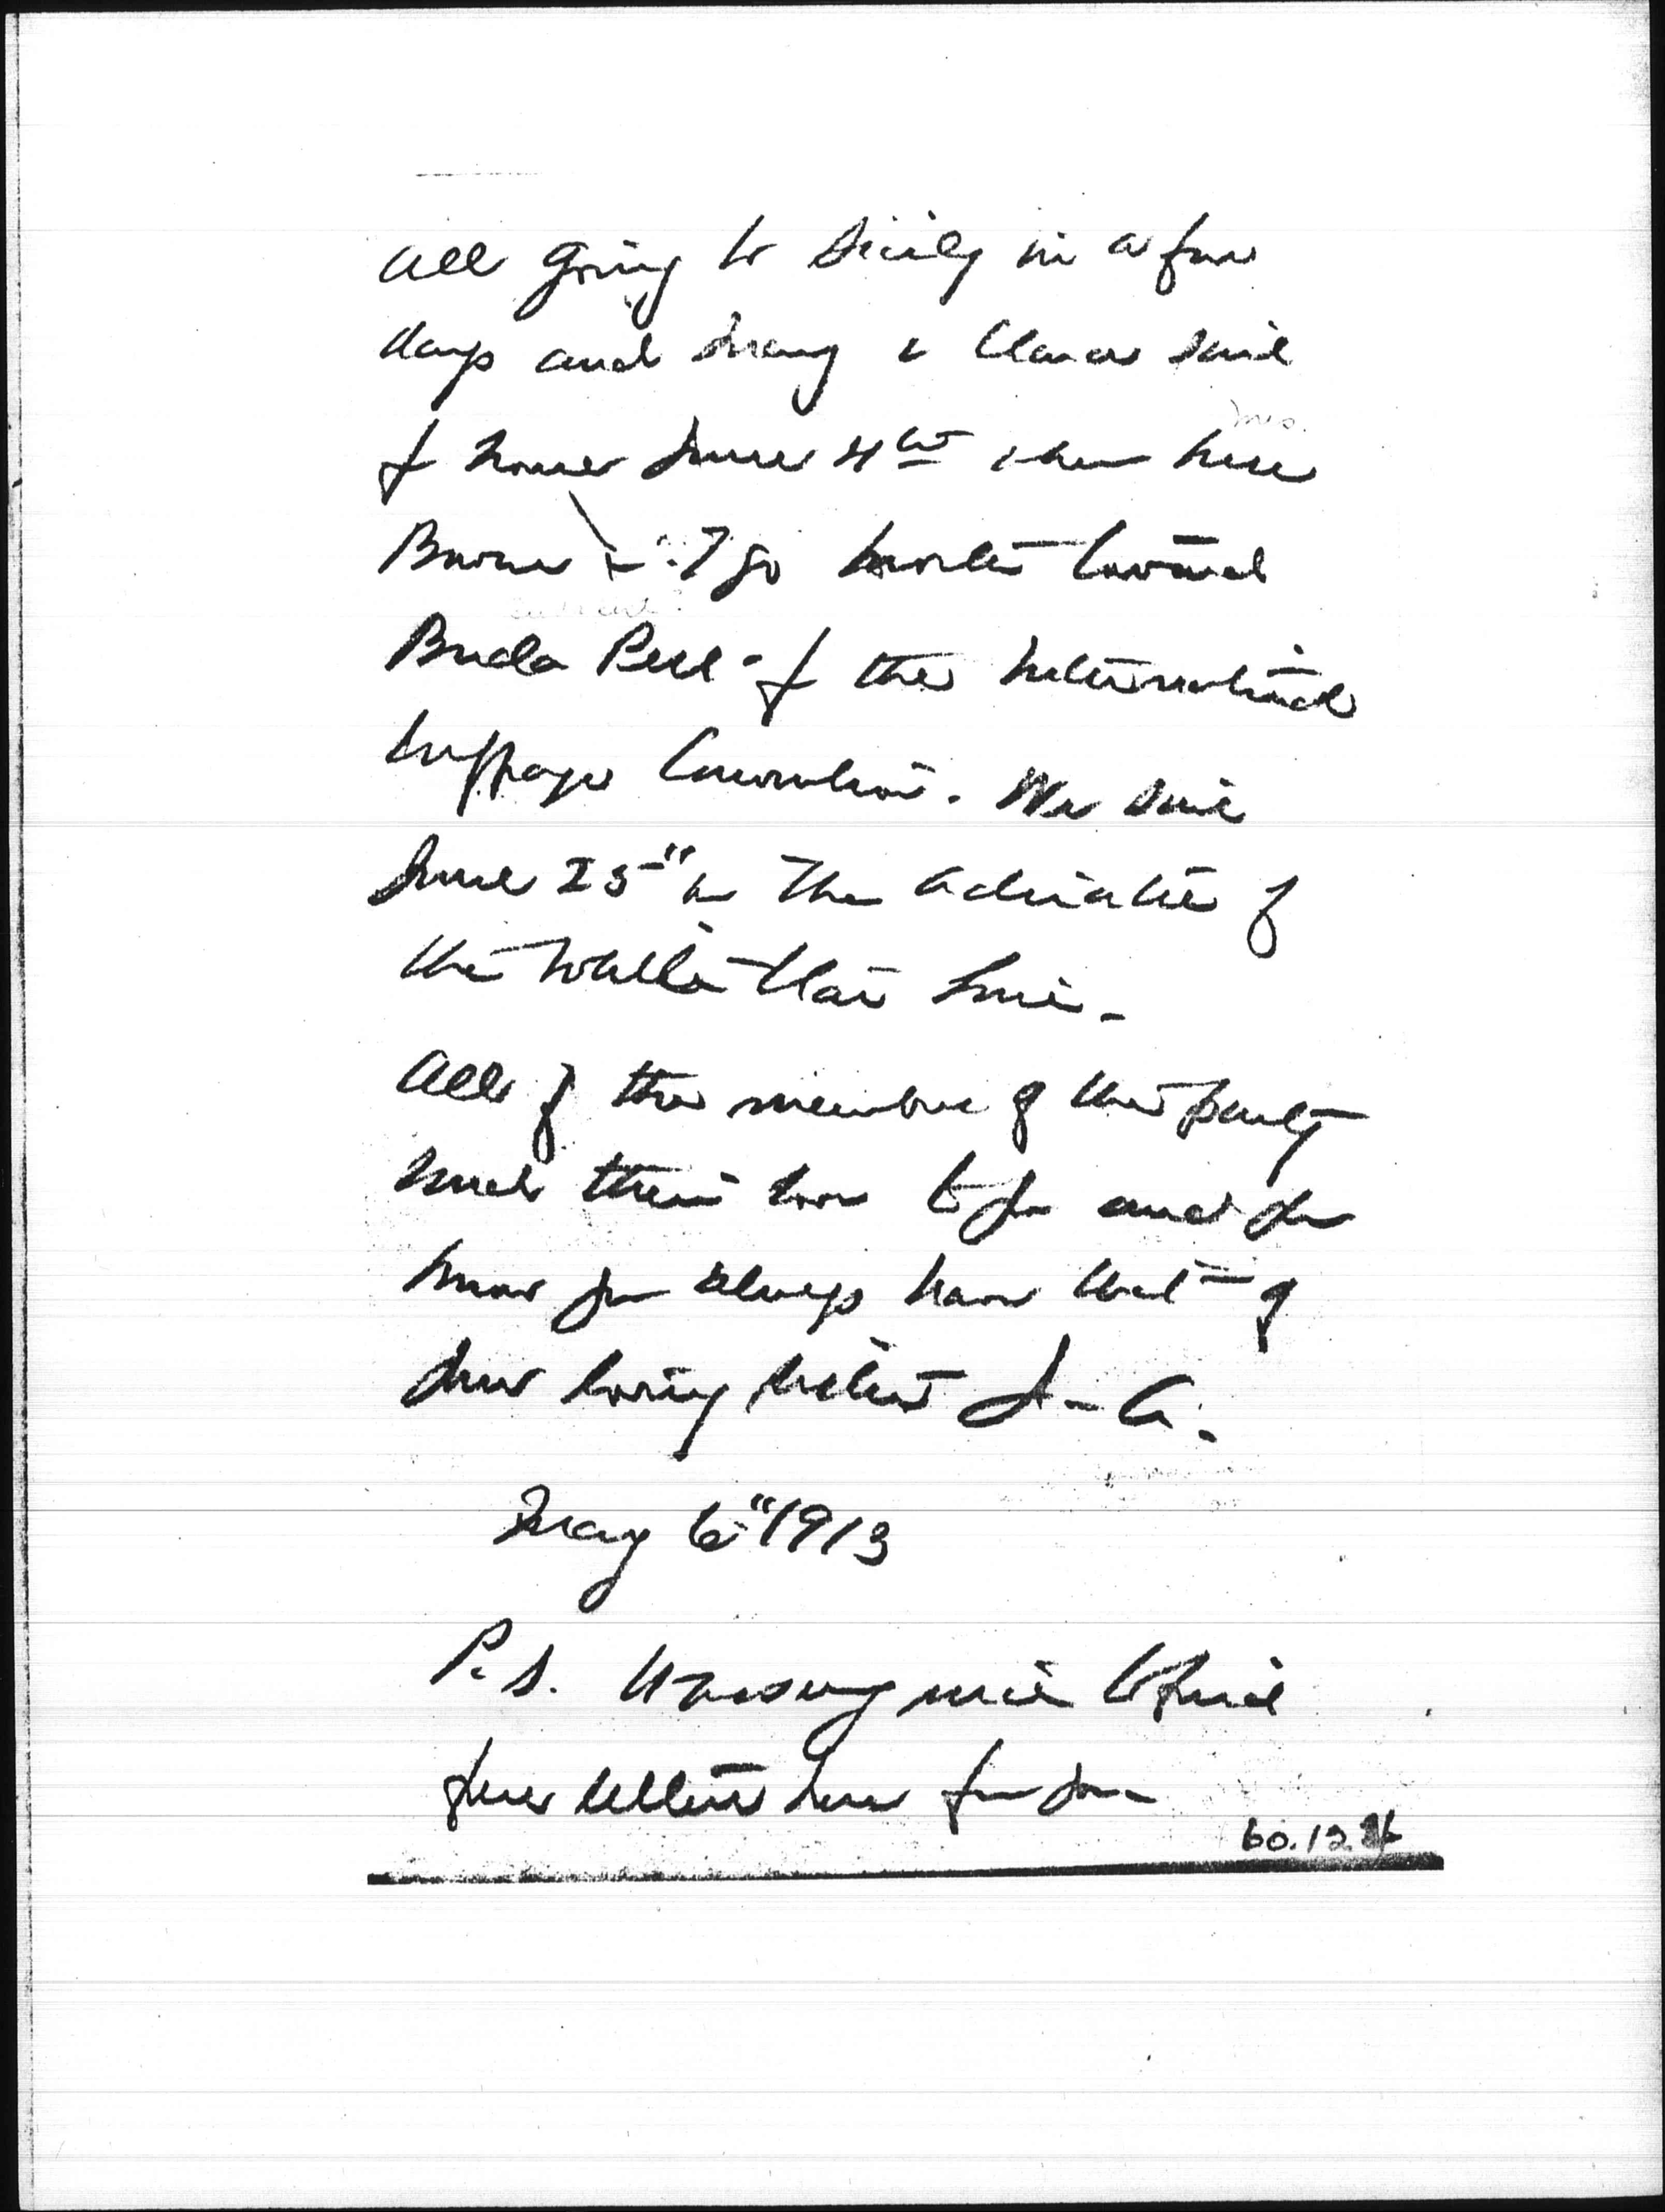 all going to Sicily in a few
days and Mary & Clara sail
f home June 4th when Mrs
Bowen & I go north toward
Buda Pest f the International
Suffrage Convention. We sail
June 25" on The Adriatic of
the White Star Line.
All of the members of the party
send their love to you and you
know you always have that of
your loving sister J- A.
May 6" 1913
P.S. Weasoey
your letters here for you
60.12.